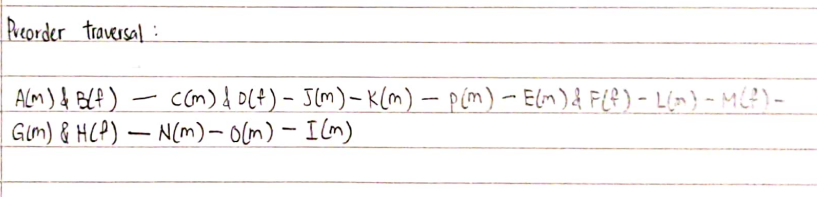 Preorder traversal :
A(m) & B(f) — C(m) & D(f) - J(m) - K(m) — P(m) - E(m) & F(f) - L(m) - M(f) -
G(m) & H(f) — N(m) - O(m) - I(m)